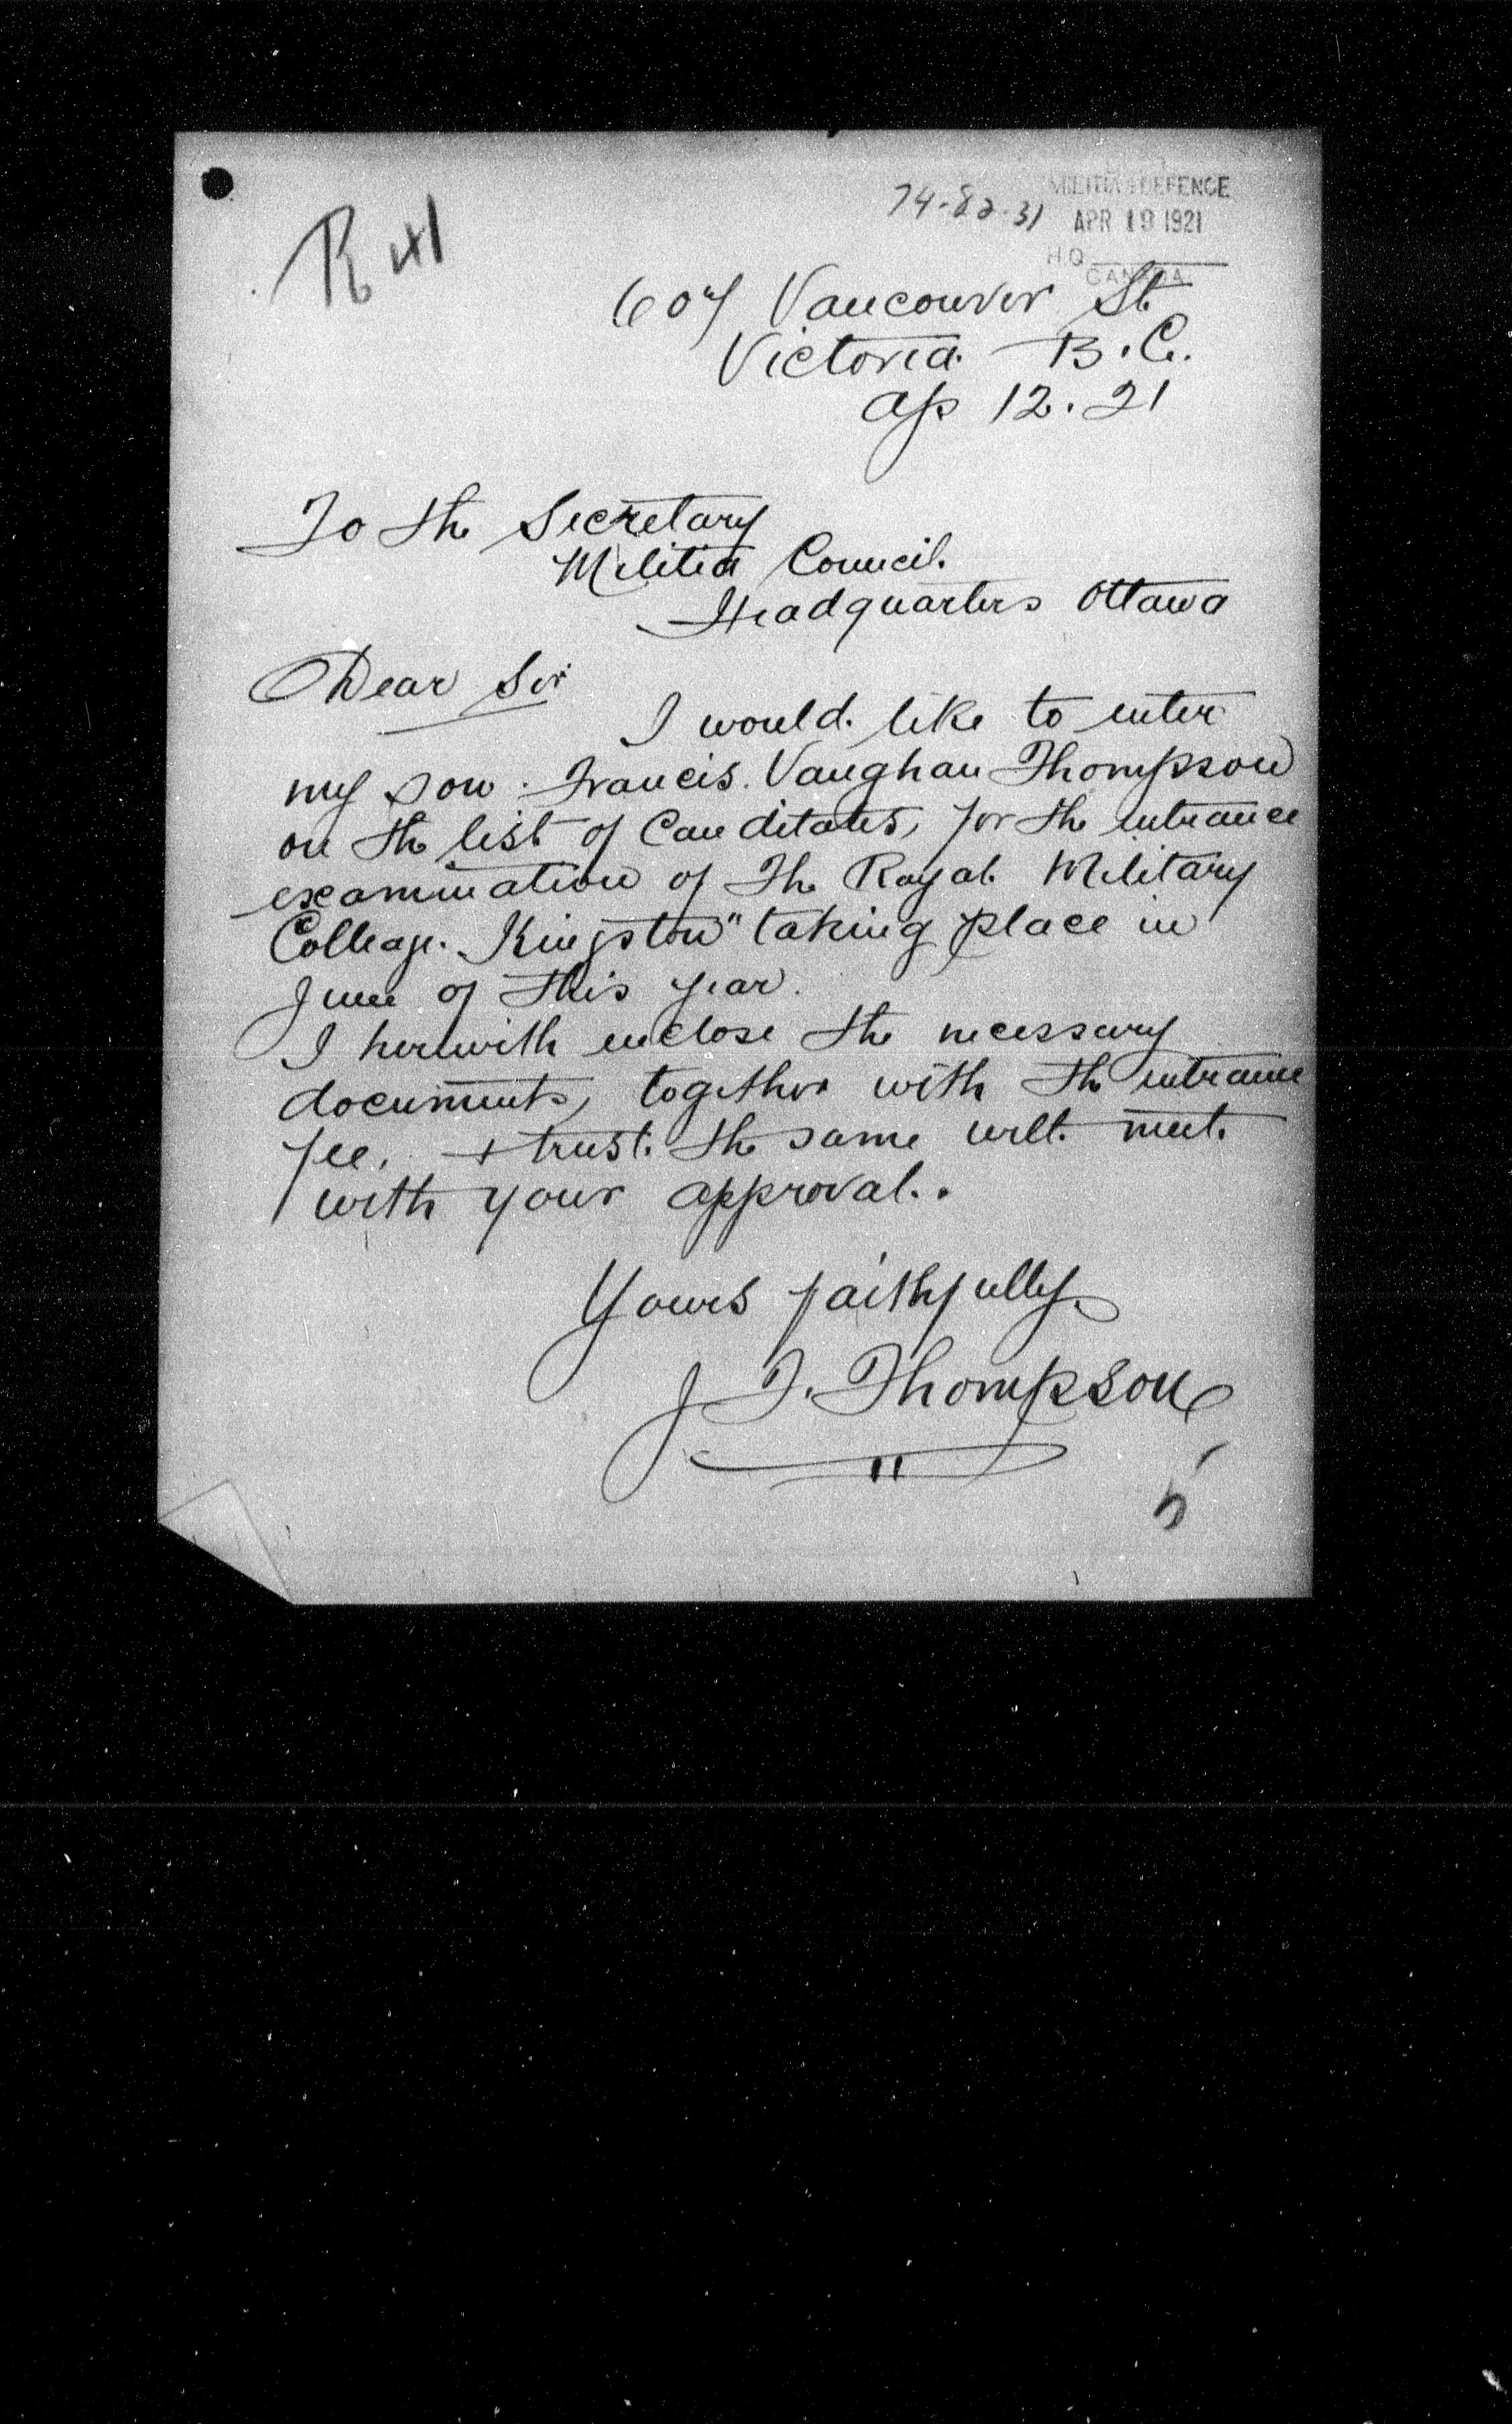 R 41
74-82-31
MILITIA & DEFENCE
APR 19 1921
H.Q.
CANADA
607 Vancouver St.
Victoria. B.C.
Ap 12. 21
To the Secretary
Militia Council.
Headquarters Ottawa
Dear Sir
I would. like to enter
my son. Francis. Vaughan Thompson
on the list of Canditates, for the entrance
examination of The Royal. Military
College. Kingston" taking place in
June of this year.
I herewith enclose the necessary
documents, together with the entrance
fee, + trust. the same will. meet.
with your approval..
Yours faithfully
J. T. Thompson
5